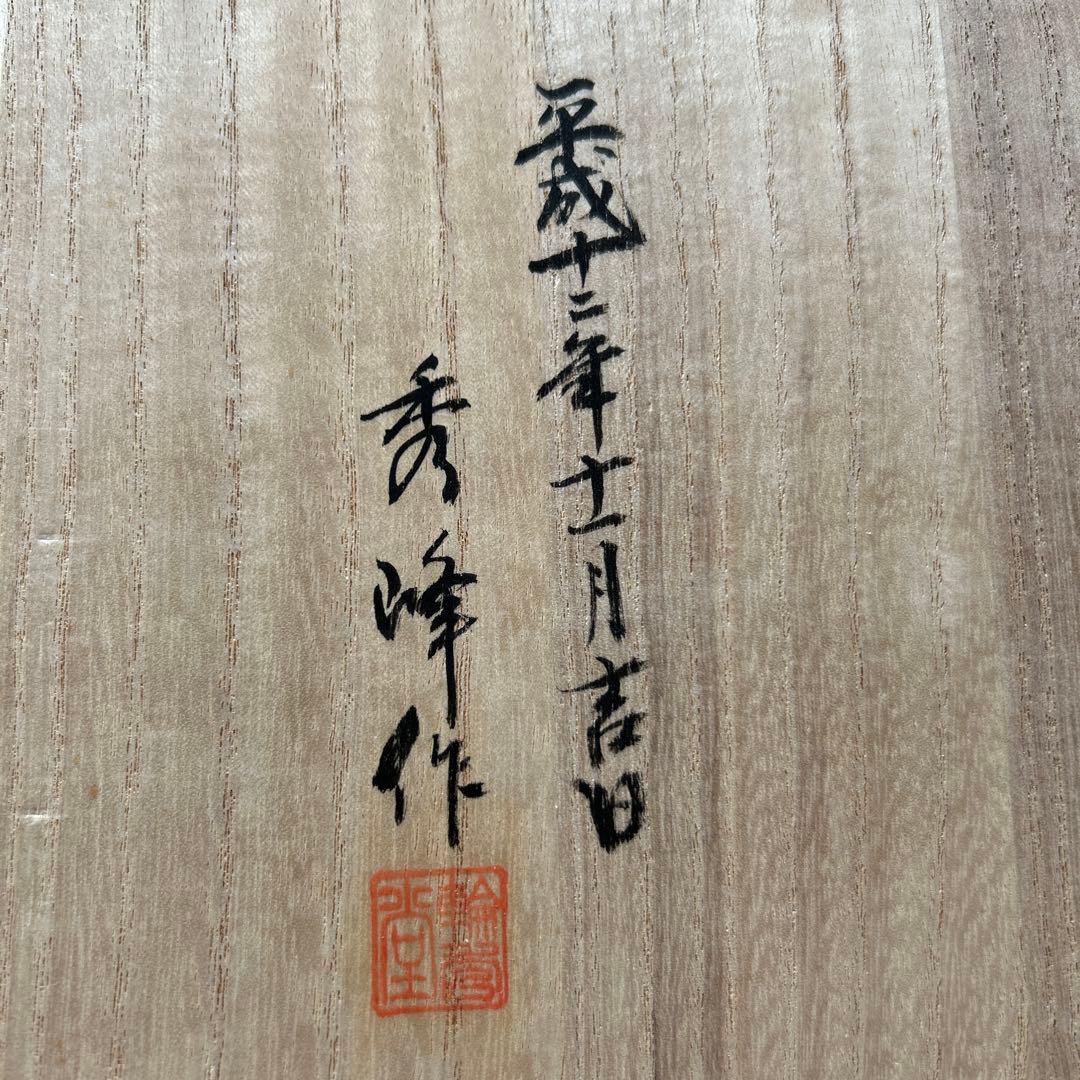 平成十二年十一月吉日
秀峰作